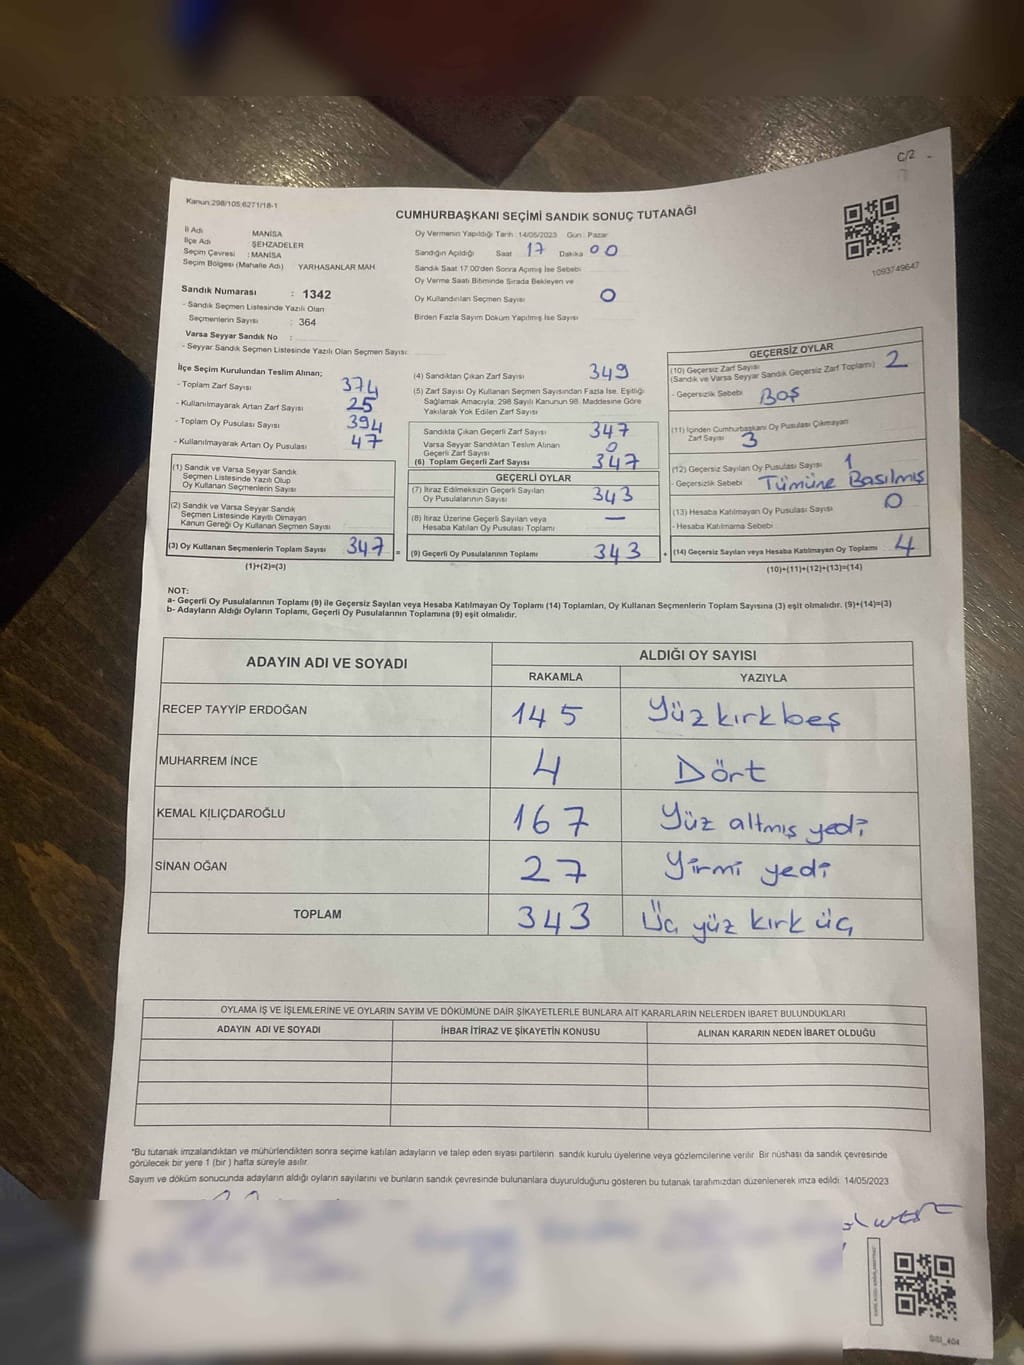 C/2
Kanun:298/105;6271/18-1
CUMHURBAŞKANI SEÇİMİ SANDIK SONUÇ TUTANAĞI
1093749647
İl Adı MANİSA
İlçe Adı ŞEHZADELER
Seçim Çevresi : MANİSA
Seçim Bölgesi (Mahalle Adı) YARHASANLAR MAH.
Sandık Numarası : 1342
- Sandık Seçmen Listesinde Yazılı Olan
Seçmenlerin Sayısı : 364
Varsa Seyyar Sandık No :
- Seyyar Sandık Seçmen Listesinde Yazılı Olan Seçmen Sayısı:
Oy Vermenin Yapıldığı Tarih : 14/05/2023 Gün : Pazar
Sandığın Açıldığı Saat 17 Dakika 00
Sandık Saat 17.00'den Sonra Açılmış İse Sebebi
Oy Verme Saati Bitiminde Sırada Bekleyen ve
Oy Kullandırılan Seçmen Sayısı 0
Birden Fazla Sayım Döküm Yapılmış İse Sayısı
İlçe Seçim Kurulundan Teslim Alınan;
- Toplam Zarf Sayısı 374
- Kullanılmayarak Artan Zarf Sayısı 25
- Toplam Oy Pusulası Sayısı 394
- Kullanılmayarak Artan Oy Pusulası 47
(1) Sandık ve Varsa Seyyar Sandık
Seçmen Listesinde Yazılı Olup
Oy Kullanan Seçmenlerin Sayısı
(2) Sandık ve Varsa Seyyar Sandık
Seçmen Listesinde Kayıtlı Olmayan
Kanun Gereği Oy Kullanan Seçmen Sayısı
(3) Oy Kullanan Seçmenlerin Toplam Sayısı 347 =
(1)+(2)=(3)
(4) Sandıktan Çıkan Zarf Sayısı 349
(5) Zarf Sayısı Oy Kullanan Seçmen Sayısından Fazla İse, Eşitliği
Sağlamak Amacıyla, 298 Sayılı Kanunun 98. Maddesine Göre
Yakılarak Yok Edilen Zarf Sayısı
Sandıkta Çıkan Geçerli Zarf Sayısı 347
Varsa Seyyar Sandıktan Teslim Alınan
Geçerli Zarf Sayısı 0
(6) Toplam Geçerli Zarf Sayısı 347
GEÇERLİ OYLAR
(7) İtiraz Edilmeksizin Geçerli Sayılan
Oy Pusulalarının Sayısı 343
(8) İtiraz Üzerine Geçerli Sayılan veya
Hesaba Katılan Oy Pusulası Toplamı —
(9) Geçerli Oy Pusulalarının Toplamı 343 +
GEÇERSİZ OYLAR
(10) Geçersiz Zarf Sayısı
(Sandık ve Varsa Seyyar Sandık Geçersiz Zarf Toplamı) 2
- Geçersizlik Sebebi Boş
(11) İçinden Cumhurbaşkanı Oy Pusulası Çıkmayan
Zarf Sayısı 3
(12) Geçersiz Sayılan Oy Pusulası Sayısı 1
- Geçersizlik Sebebi Tümüne Basılmış
(13) Hesaba Katılmayan Oy Pusulası Sayısı 0
- Hesaba Katılmama Sebebi
(14) Geçersiz Sayılan veya Hesaba Katılmayan Oy Toplamı 4
(10)+(11)+(12)+(13)=(14)
NOT:
a- Geçerli Oy Pusulalarının Toplamı (9) ile Geçersiz Sayılan veya Hesaba Katılmayan Oy Toplamı (14) Toplamları, Oy Kullanan Seçmenlerin Toplam Sayısına (3) eşit olmalıdır. (9)+(14)=(3)
b- Adayların Aldığı Oyların Toplamı, Geçerli Oy Pusulalarının Toplamına (9) eşit olmalıdır.
ADAYIN ADI VE SOYADI ALDIĞI OY SAYISI
RAKAMLA YAZIYLA
RECEP TAYYİP ERDOĞAN 145 Yüz kırk beş
MUHARREM İNCE 4 Dört
KEMAL KILIÇDAROĞLU 167 Yüz altmış yedi
SİNAN OĞAN 27 Yirmi yedi
TOPLAM 343 Üç yüz kırk üç
OYLAMA İŞ VE İŞLEMLERİNE VE OYLARIN SAYIM VE DÖKÜMÜNE DAİR ŞİKAYETLERLE BUNLARA AİT KARARLARIN NELERDEN İBARET BULUNDUKLARI
ADAYIN ADI VE SOYADI İHBAR İTİRAZ VE ŞİKAYETİN KONUSU ALINAN KARARIN NEDEN İBARET OLDUĞU
*Bu tutanak imzalandıktan ve mühürlendikten sonra seçime katılan adayların ve talep eden siyasi partilerin sandık kurulu üyelerine veya gözlemcilerine verilir. Bir nüshası da sandık çevresinde
görülecek bir yere 1 (bir) hafta süreyle asılır.
Sayım ve döküm sonucunda adayların aldığı oyların sayılarını ve bunların sandık çevresinde bulunanlara duyurulduğunu gösteren bu tutanak tarafımızdan düzenlenerek imza edildi. 14/05/2023